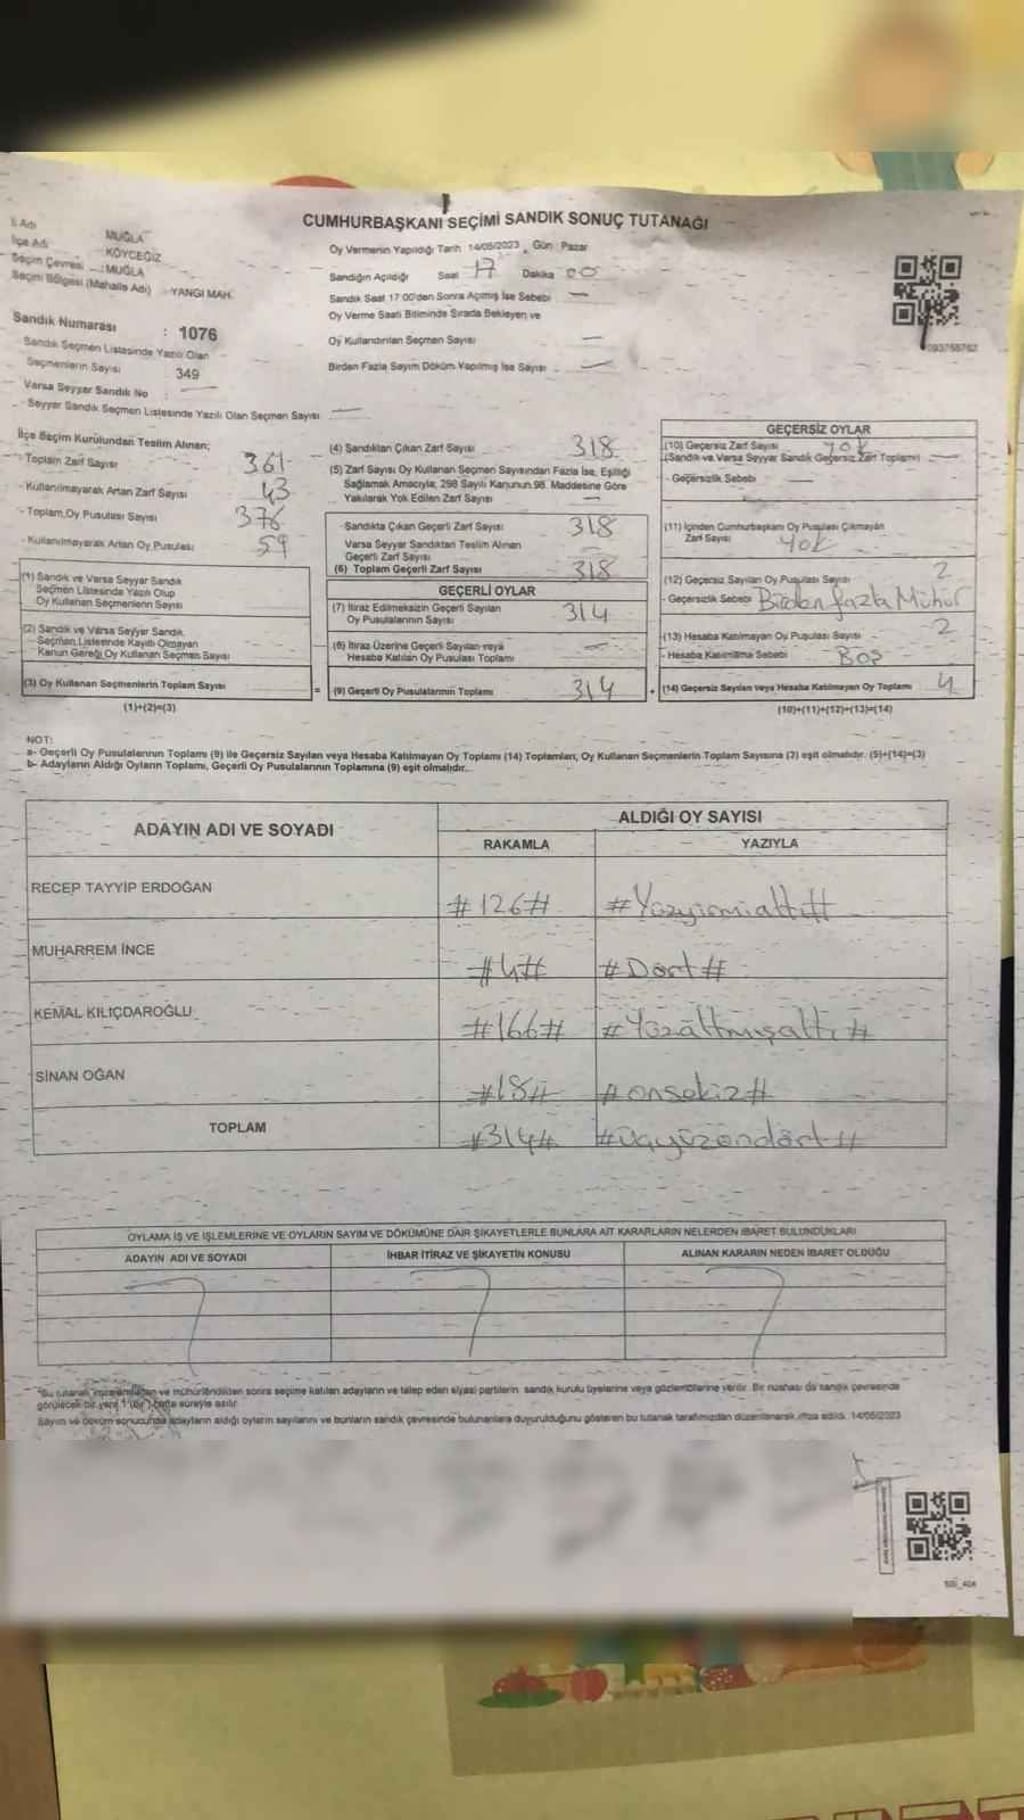 CUMHURBAŞKANI SEÇİMİ SANDIK SONUÇ TUTANAĞI
İl Adı MUĞLA
İlçe Adı KÖYCEĞİZ
Seçim Çevresi : MUĞLA
Seçim Bölgesi (Mahalle Adı) YANGI MAH.
Oy Vermenin Yapıldığı Tarih 14/05/2023 , Gün : Pazar
Sandığın Açıldığı Saat 17 Dakika 00
Sandık Saat 17:00'den Sonra Açılmış İse Sebebi —
Oy Verme Saati Bitiminde Sırada Bekleyen ve
Oy Kullandırılan Seçmen Sayısı —
Birden Fazla Sayım Döküm Yapılmış İse Sayısı —
Sandık Numarası : 1076
Sandık Seçmen Listesinde Yazılı Olan
Seçmenlerin Sayısı 349
Varsa Seyyar Sandık No —
Seyyar Sandık Seçmen Listesinde Yazılı Olan Seçmen Sayısı —
İlçe Seçim Kurulundan Teslim Alınan;
Toplam Zarf Sayısı 361
- Kullanılmayarak Artan Zarf Sayısı 43
- Toplam Oy Pusulası Sayısı 376
- Kullanılmayarak Artan Oy Pusulası 59
(1) Sandık ve Varsa Seyyar Sandık
Seçmen Listesinde Yazılı Olup
Oy Kullanan Seçmenlerin Sayısı
(2) Sandık ve Varsa Seyyar Sandık
Seçmen Listesinde Kayıtlı Olmayan
Kanun Gereği Oy Kullanan Seçmen Sayısı
(3) Oy Kullanan Seçmenlerin Toplam Sayısı
(1)+(2)=(3)
(4) Sandıktan Çıkan Zarf Sayısı 318
(5) Zarf Sayısı Oy Kullanan Seçmen Sayısından Fazla İse, Eşitliği
Sağlamak Amacıyla, 298 Sayılı Kanunun 98. Maddesine Göre
Yakılarak Yok Edilen Zarf Sayısı —
Sandıkta Çıkan Geçerli Zarf Sayısı 318
Varsa Seyyar Sandıktan Teslim Alınan
Geçerli Zarf Sayısı —
(6) Toplam Geçerli Zarf Sayısı 318
GEÇERLİ OYLAR
(7) İtiraz Edilmeksizin Geçerli Sayılan
Oy Pusulalarının Sayısı 314
(8) İtiraz Üzerine Geçerli Sayılan veya
Hesaba Katılan Oy Pusulası Toplamı —
= (9) Geçerli Oy Pusulalarının Toplamı 314
GEÇERSİZ OYLAR
(10) Geçersiz Zarf Sayısı yok
(Sandık ve Varsa Seyyar Sandık Geçersiz Zarf Toplamı) —
- Geçersizlik Sebebi —
(11) İçinden Cumhurbaşkanı Oy Pusulası Çıkmayan
Zarf Sayısı yok
(12) Geçersiz Sayılan Oy Pusulası Sayısı 2
- Geçersizlik Sebebi Birden fazla Mühür
(13) Hesaba Katılmayan Oy Pusulası Sayısı 2
- Hesaba Katılmama Sebebi Boş
+ (14) Geçersiz Sayılan veya Hesaba Katılmayan Oy Toplamı 4
(10)+(11)+(12)+(13)=(14)
NOT:
a- Geçerli Oy Pusulalarının Toplamı (9) ile Geçersiz Sayılan veya Hesaba Katılmayan Oy Toplamı (14) Toplamları, Oy Kullanan Seçmenlerin Toplam Sayısına (3) eşit olmalıdır. (9)+(14)=(3)
b- Adayların Aldığı Oyların Toplamı, Geçerli Oy Pusulalarının Toplamına (9) eşit olmalıdır.
ADAYIN ADI VE SOYADI ALDIĞI OY SAYISI
RAKAMLA YAZIYLA
RECEP TAYYİP ERDOĞAN #126# #Yüzyirmialtı#
MUHARREM İNCE #4# #Dört#
KEMAL KILIÇDAROĞLU #166# #Yüzaltmışaltı#
SİNAN OĞAN #18# #onsekiz#
TOPLAM #314# #üçyüzondört#
OYLAMA İŞ VE İŞLEMLERİNE VE OYLARIN SAYIM VE DÖKÜMÜNE DAİR ŞİKAYETLERLE BUNLARA AİT KARARLARIN NELERDEN İBARET BULUNDUKLARI
ADAYIN ADI VE SOYADI İHBAR İTİRAZ VE ŞİKAYETİN KONUSU ALINAN KARARIN NEDEN İBARET OLDUĞU
Bu tutanak imzalandıktan ve mühürlendikten sonra seçime katılan adayların ve talep eden siyasi partilerin sandık kurulu üyelerine veya gözlemcilerine verilir. Bir nüshası da sandık çevresinde
görülecek bir yere 1 (bir) hafta süreyle asılır.
Sayım ve döküm sonucunda adayların aldığı oyların sayılarını ve bunların sandık çevresinde bulunanlara duyurulduğunu gösteren bu tutanak tarafımızdan düzenlenerek imza edildi. 14/05/2023